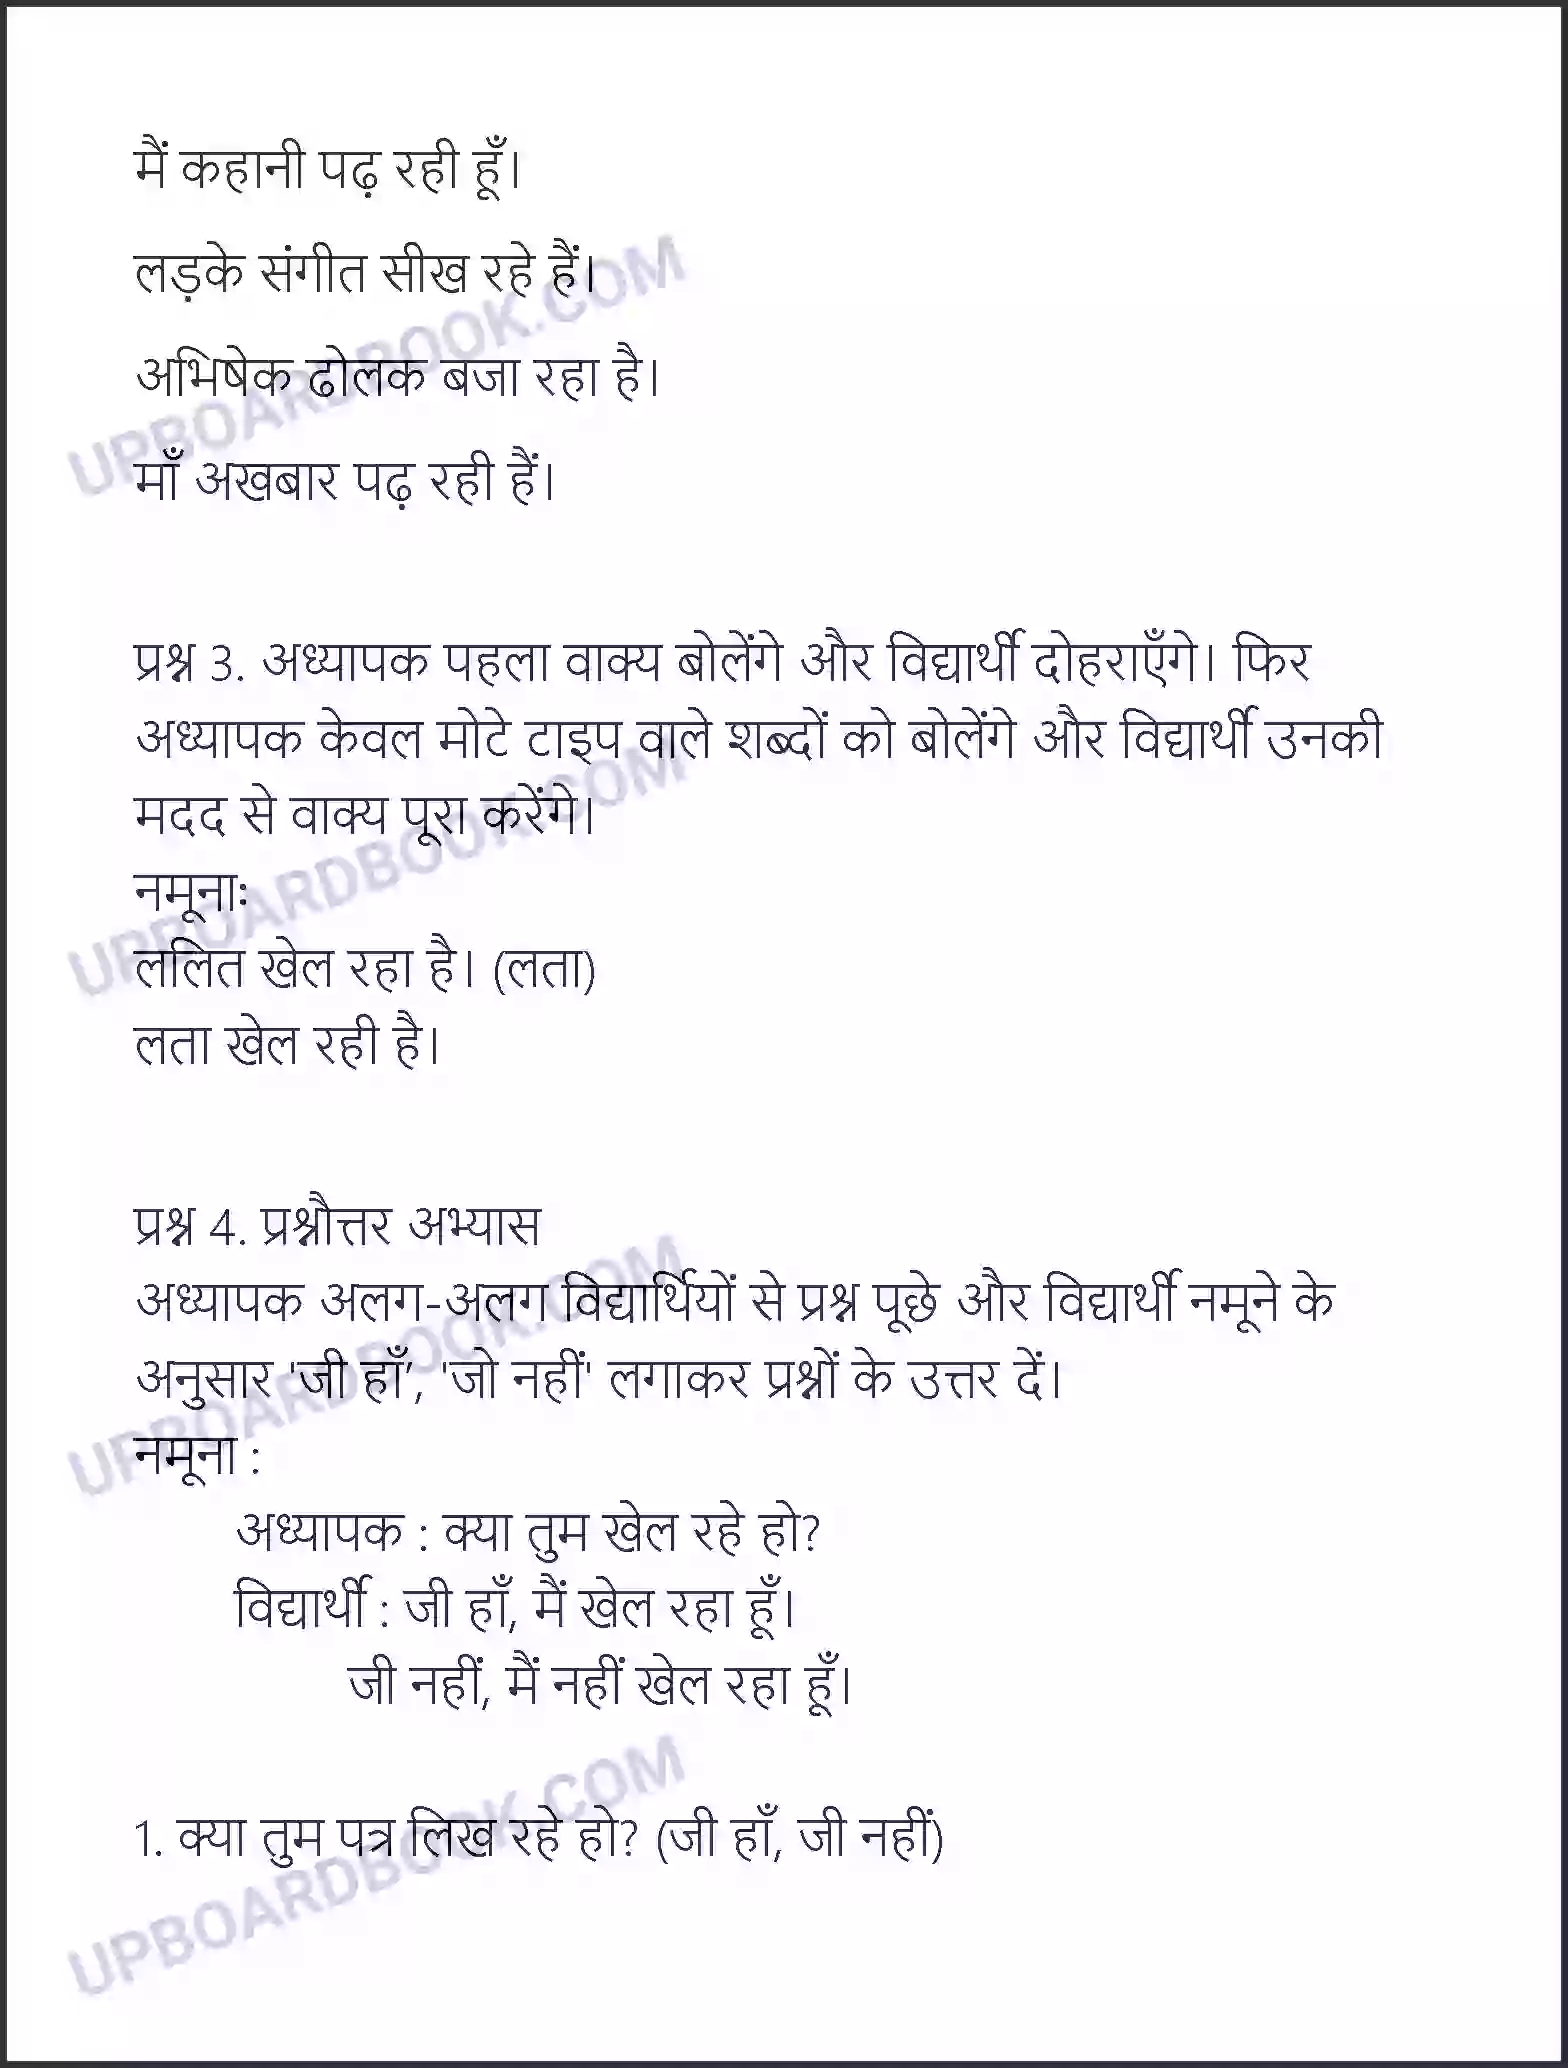 मैं कहानी पढ़ रही हूँ।
लड़के संगीत सीख रहे हैं।
अभिषेक ढोलक बजा रहा है।
माँ अखबार पढ़ रही हैं।
प्रश्न 3. अध्यापक पहला वाक्य बोलेंगे और विद्यार्थी दोहराएँगे। फिर
अध्यापक केवल मोटे टाइप वाले शब्दों को बोलेंगे और विद्यार्थी उनकी
मदद से वाक्य पूरा करेंगे।
नमूनाः
ललित खेल रहा है। (लता)
लता खेल रही है।
प्रश्न 4. प्रश्नौत्तर अभ्यास
अध्यापक अलग-अलग विद्यार्थियों से प्रश्न पूछे और विद्यार्थी नमूने के
अनुसार 'जी हाँ', 'जो नहीं' लगाकर प्रश्नों के उत्तर दें।
नमूना :
अध्यापक : क्या तुम खेल रहे हो?
विद्यार्थी : जी हाँ, मैं खेल रहा हूँ।
जी नहीं, मैं नहीं खेल रहा हूँ।
1. क्या तुम पत्र लिख रहे हो? (जी हाँ, जी नहीं)
UPBOARDBOOK.COM
UPBOARDBOOK.COM
UPBOARDBOOK.COM
UPBOARDBOOK.COM